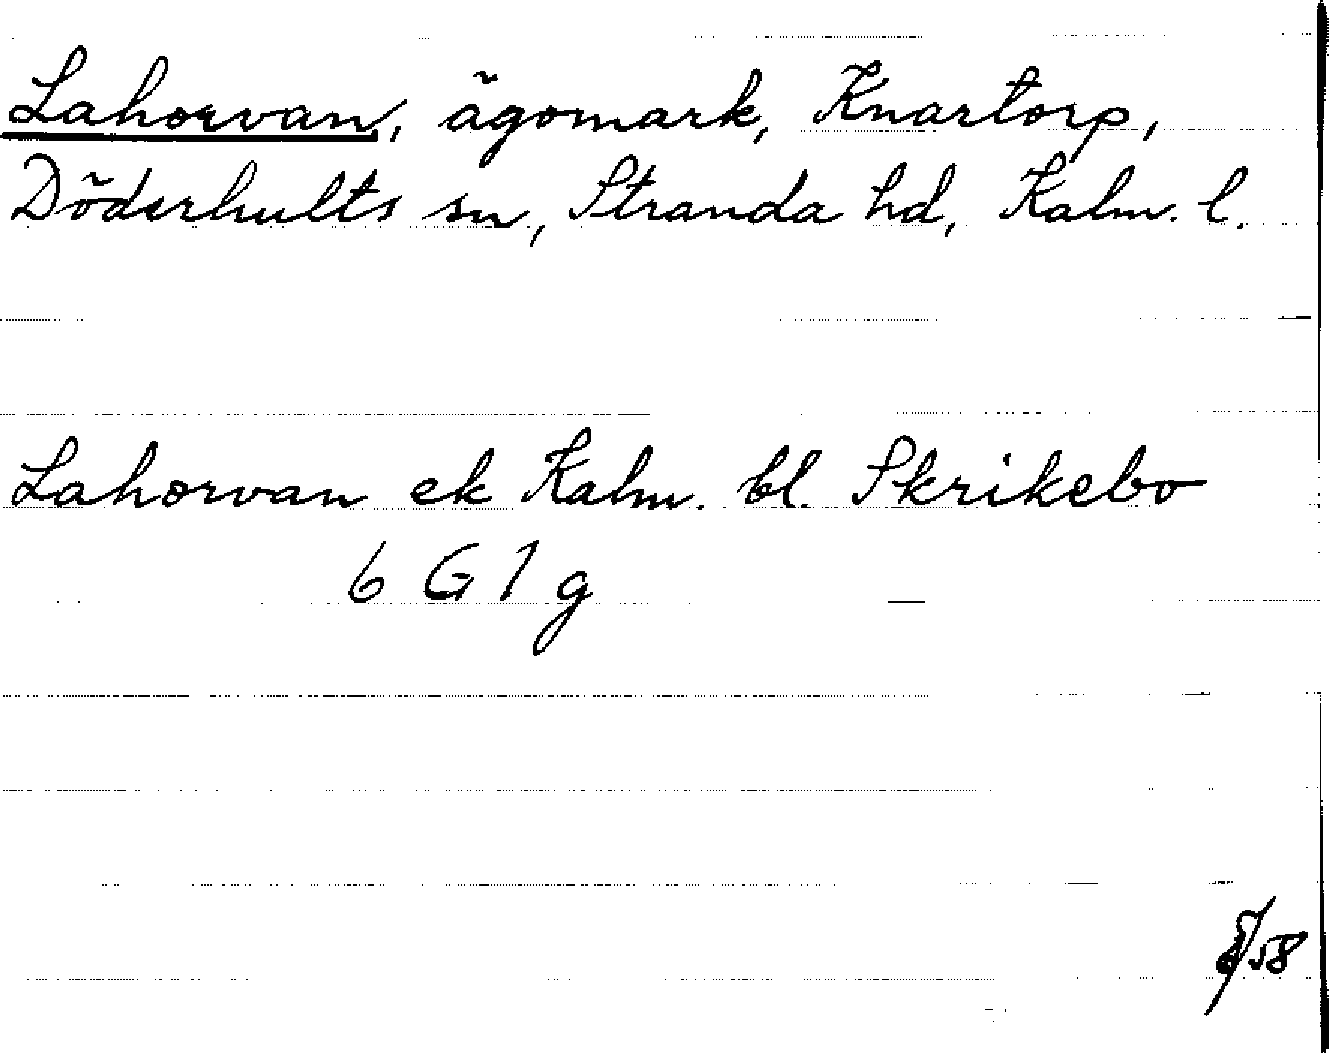 Lahorvan, ägomark, Knartorp,
Döderhults sn, Stranda hd, Kalm. l.
Lahorvan ek Kalm. bl. Skrikebo
6 G 1 g
/58